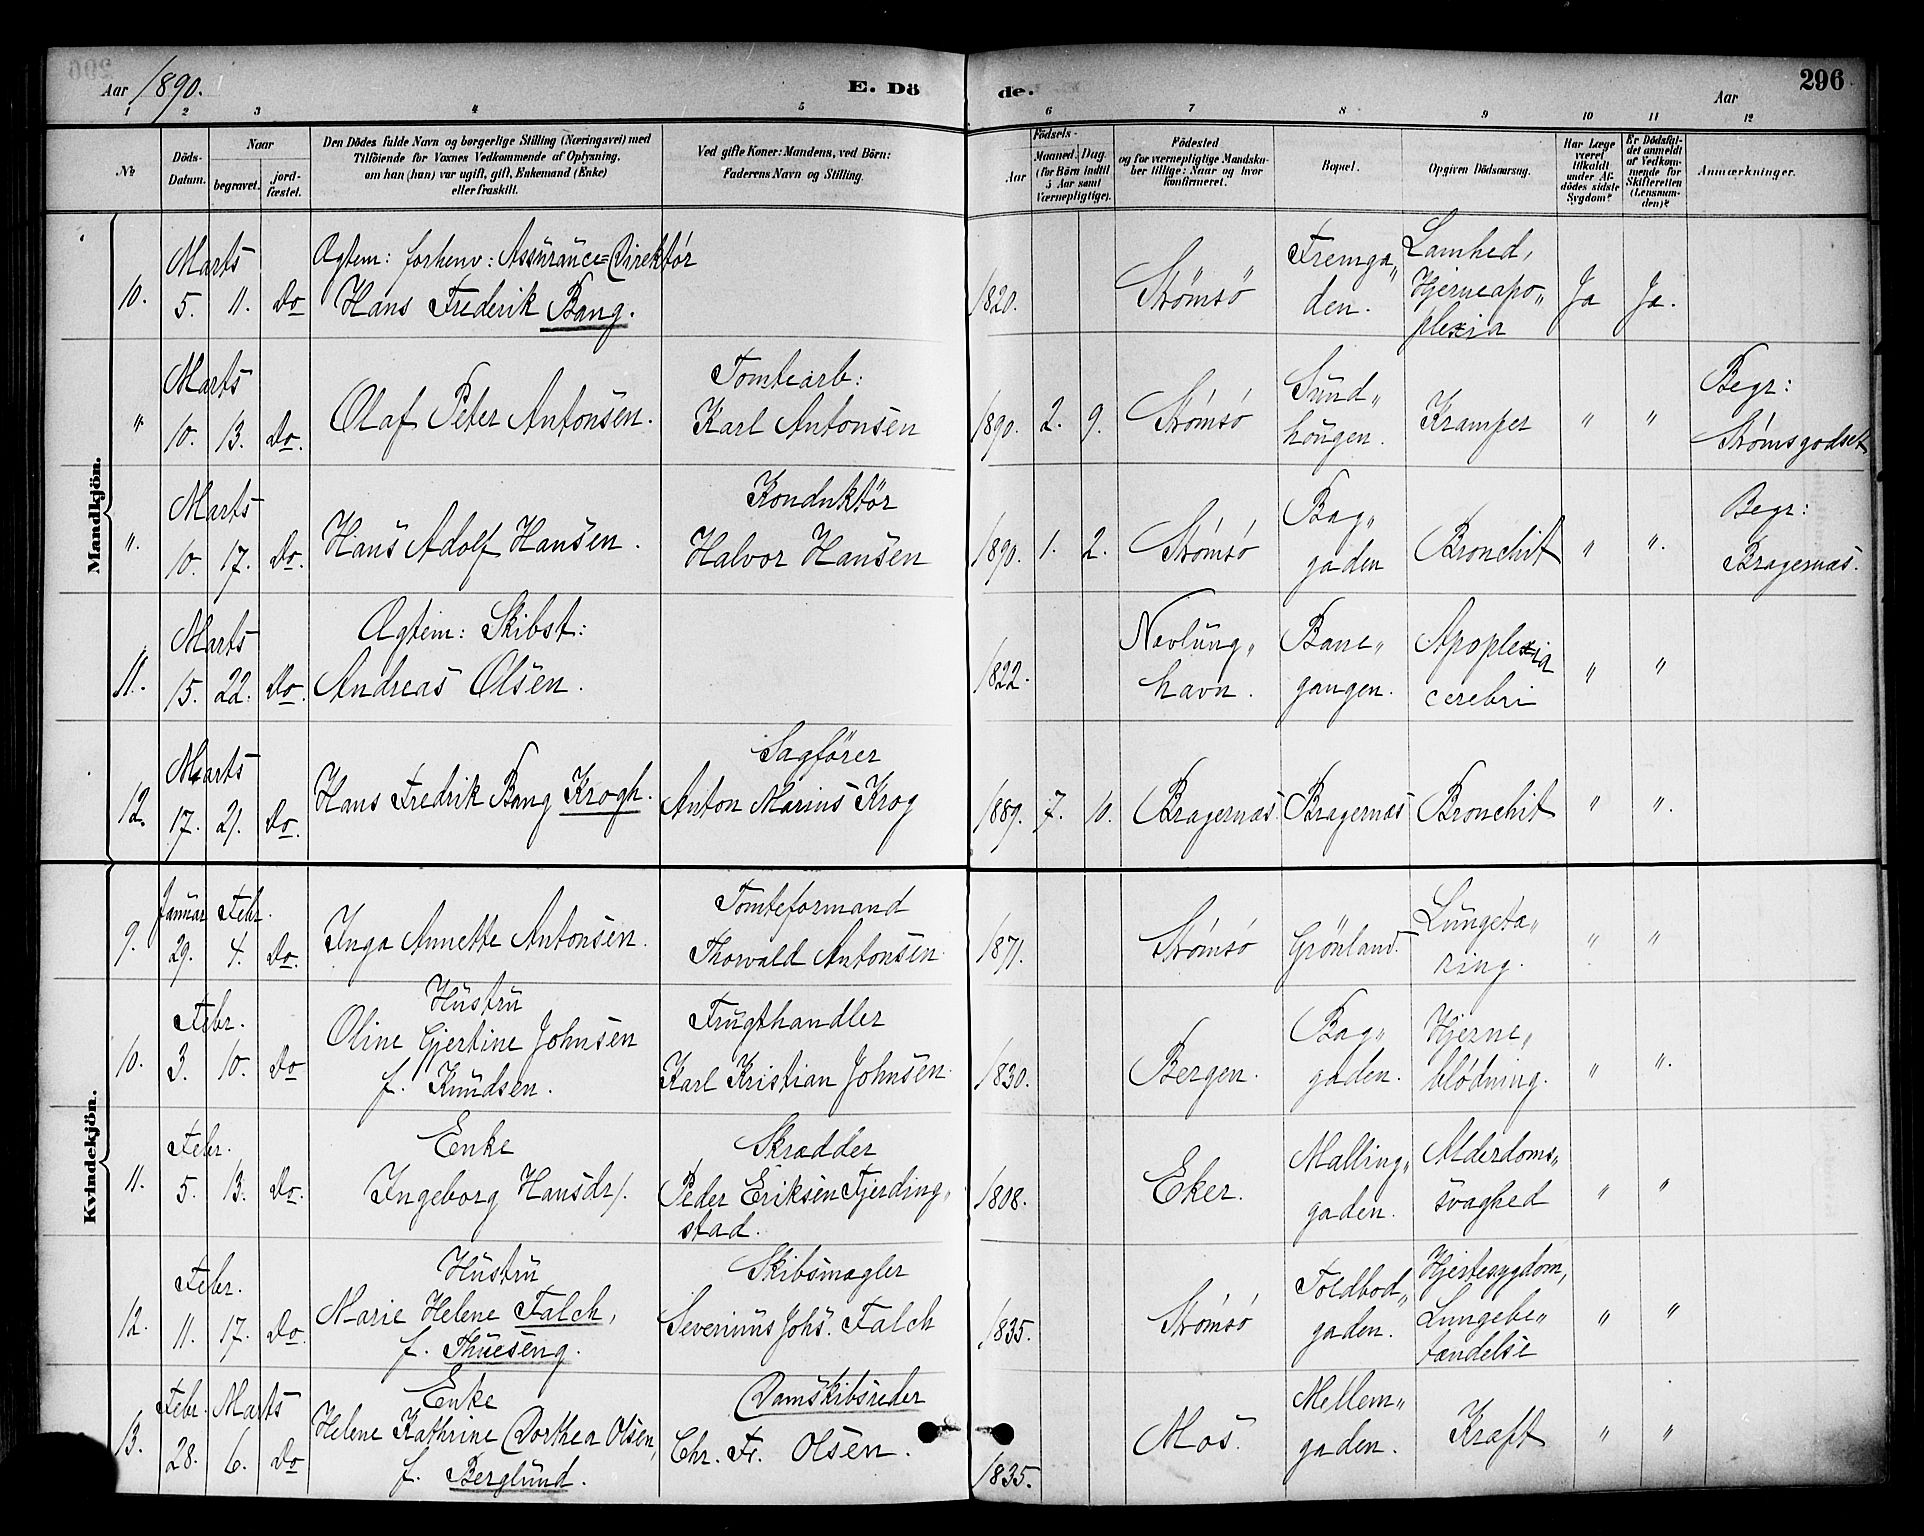 Aar 1890.
E. Döde.
Aar
296
1 2 3 4 5 6 7 8 9 10 11 12
No
Döds-Datum.
Naar
begravet.
jord-fæstet.
Den Dödes fulde Navn og borgerlige Stilling (Næringsvei) med
Tilföiende for Voxnes Vedkommende af Oplysning,
om han (hun) var ugift, gift, Enkemand (Enke)
eller fraskilt.
Ved gifte Koner: Mandens, ved Börn:
Faderens Navn og Stilling.
Födsels-
Aar
Maaned. Dag.
(for Börn indtil
5 Aar samt
Værnepligtige).
Födested
og for værnepligtige Mandsku-
ber tillige: Naar og hvor
konfirmeret.
Bopæl.
Opgiven Dödsaarsag.
Har Læge
været
tilkaldt
under Af-
dödes sidste
Sygdom?
Er Dödsfal-
det anmeldt
af Vedkom-
mende for
Skifteretten
(Lensman-
den)?
Anmærkninger.
Mandkjön.
10. Marts 5. 11. Do Ægtem: forhenv: Assürance=Direktör
Hans Frederik Bang. 1820. Strømsø Fremga„
den. Lamhed,
Hjerneapo„
plexia Ja Ja.
„ Marts 10. 13. Do. Olaf Peter Antonsen. Tomtearb:
Karl Antonsen 1890. 2. 9. Strømsø Sünd„
haugen. Kramper „ „ Begr:
Strømsgodset
„. Marts 10. 17. Do. Hans Adolf Hansen. Konduktör
Halvor Hansen 1890. 1. 2. Strømsø Bag„
gaden Bronchit „ „. Begr:
Bragernæs.
11. Marts 15. 22. Do. Ægtem: Skibst:
Andreas Olsen. 1822. Nevlüng„
havn. Bane„
gangen. Apoplexia
cerebri „ „
12. Marts 17. 21. Do. Hans Fredrik Bang Krogh. Sagförer
Anton Marius Krog 1889. 7. 10. Bragernæs. Bragernæs Bronchit „ „.
Kvindekjön.
9. Januar 29. Febr. 4. Do. Inga Annette Antonsen. Tomteformand
Thorvald Antonsen. 1871. Strømsø Grönland. Lüngetæ„
ring. „ „
10. Febr. 3. 10. Do Hüstrü
Oline Gjertine Johnsen
f. Knüdsen. Frugthandler
Karl Kristian Johnsen. 1830. Bergen. Bag„
gaden. Hjerne„
blødning. „ „.
11. Febr. 5. 13. Do. Enke
Ingeborg Hansdr/. Skrædder
Peder Eriksen Fjerding„
stad. 1808. Eker. Malling„
gaden. Alderdoms„
svaghed „ „
12. Febr. 11. 17. Do. Hüstrü
Marie Helene Falch,
f. Thueseng. Skibsmægler
Severinus Johs. Falch 1835. Strømsø Toldbod„
gaden. Hjertesygdom,
Lungebe„
tændelse „ „
13. Febr. 28. Marts 6. Do Enke
Helene Kathrine Dorthea Olsen,
f. Berglünd. Damskibsreder
Chr. Fr. Olsen. 1835. Mos. Mellem„
gaden. Kræft „ „